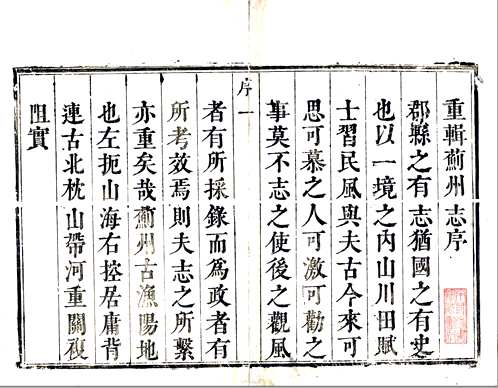 重輯薊州志序
郡縣之有志猶國之有史
也以一境之內山川田賦
士習民風與夫古今來可
思可慕之人可激可勸之
事莫不志之使後之觀風
序
一
者有所採錄而為政者有
所考效焉則夫志之所繫
亦重矣哉薊州古漁陽地
也左扼山海右控居庸背
連古北枕山帶河重關複
阻實